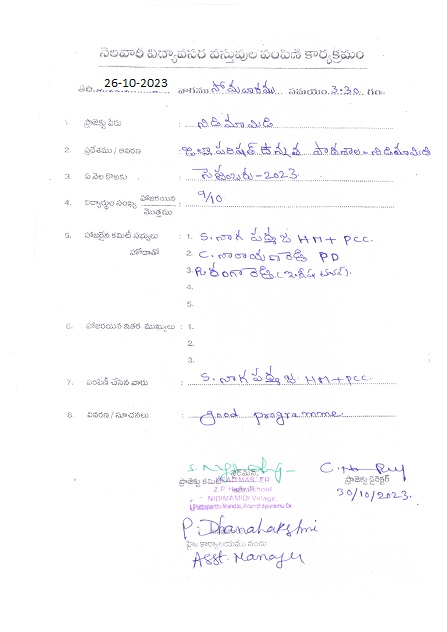 నెలవారీ విద్యావసర వస్తువుల పంపిణీ కార్యక్రమం
తేది 26-10-2023 వారము సోమవారము సమయం 3-30 గం॥
1. ప్రాజెక్టు పేరు : నిడిమామిడి
2. ప్రదేశము / ఆవరణ : జి.ప.పరిషత్ ఉన్నత పాఠశాల - నిడిమామిడి
3. ఏ నెల కొఱకు : సెప్టెంబరు - 2023
4. విద్యార్థుల సంఖ్య హాజరయిన / మొత్తము : 9/10
5. హాజరైన కమిటీ సభ్యులు : 1. S. నాగ పద్మజ HM + PCC.
హోదాతో 2. C. నారాయణరెడ్డి PD
3.
4.
5.
6. హాజరయిన ఇతర ముఖ్యులు : 1.
2.
3.
7. పంపిణీ చేసిన వారు : S. నాగ పద్మజ HM + PCC.
8. వివరణ / సూచనలు : good programme.
ప్రాజెక్టు కమిటీ ఛైర్మన్
HEAD MASTER
Z.P. High School
NIDIMAMIDI Village
Puttaparthi Mandal, Ananthapuramu Dt.
ప్రాజెక్టు డైరెక్టర్
30/10/2023.
P. Dhanalakshmi
హై॥ కార్యాలయము నందు
Asst. Manager